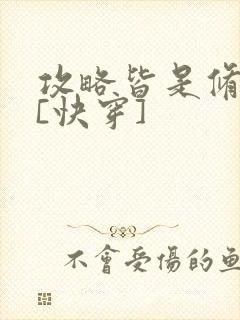 攻略皆是脩
[快穿]
不會受傷的魚